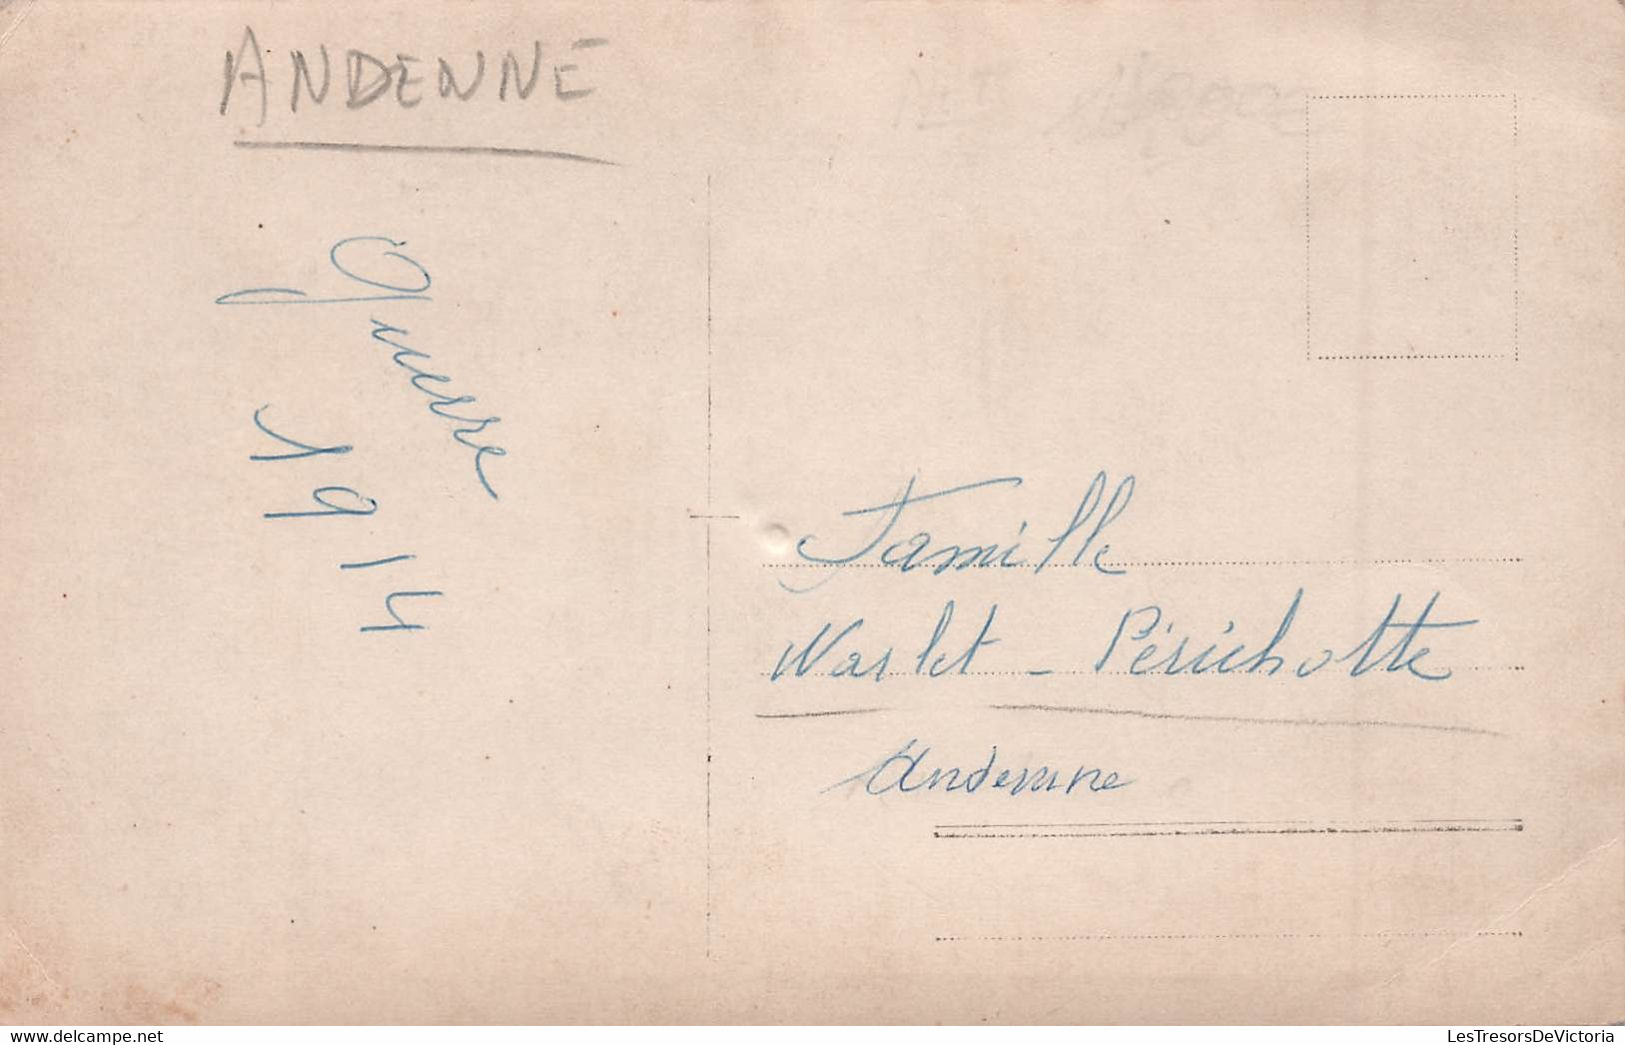 ANDENNE
Guerre
1914
Famille
Warlet - Périchotte
Andenne
www.delcampe.net
LesTresorsDeVictoria